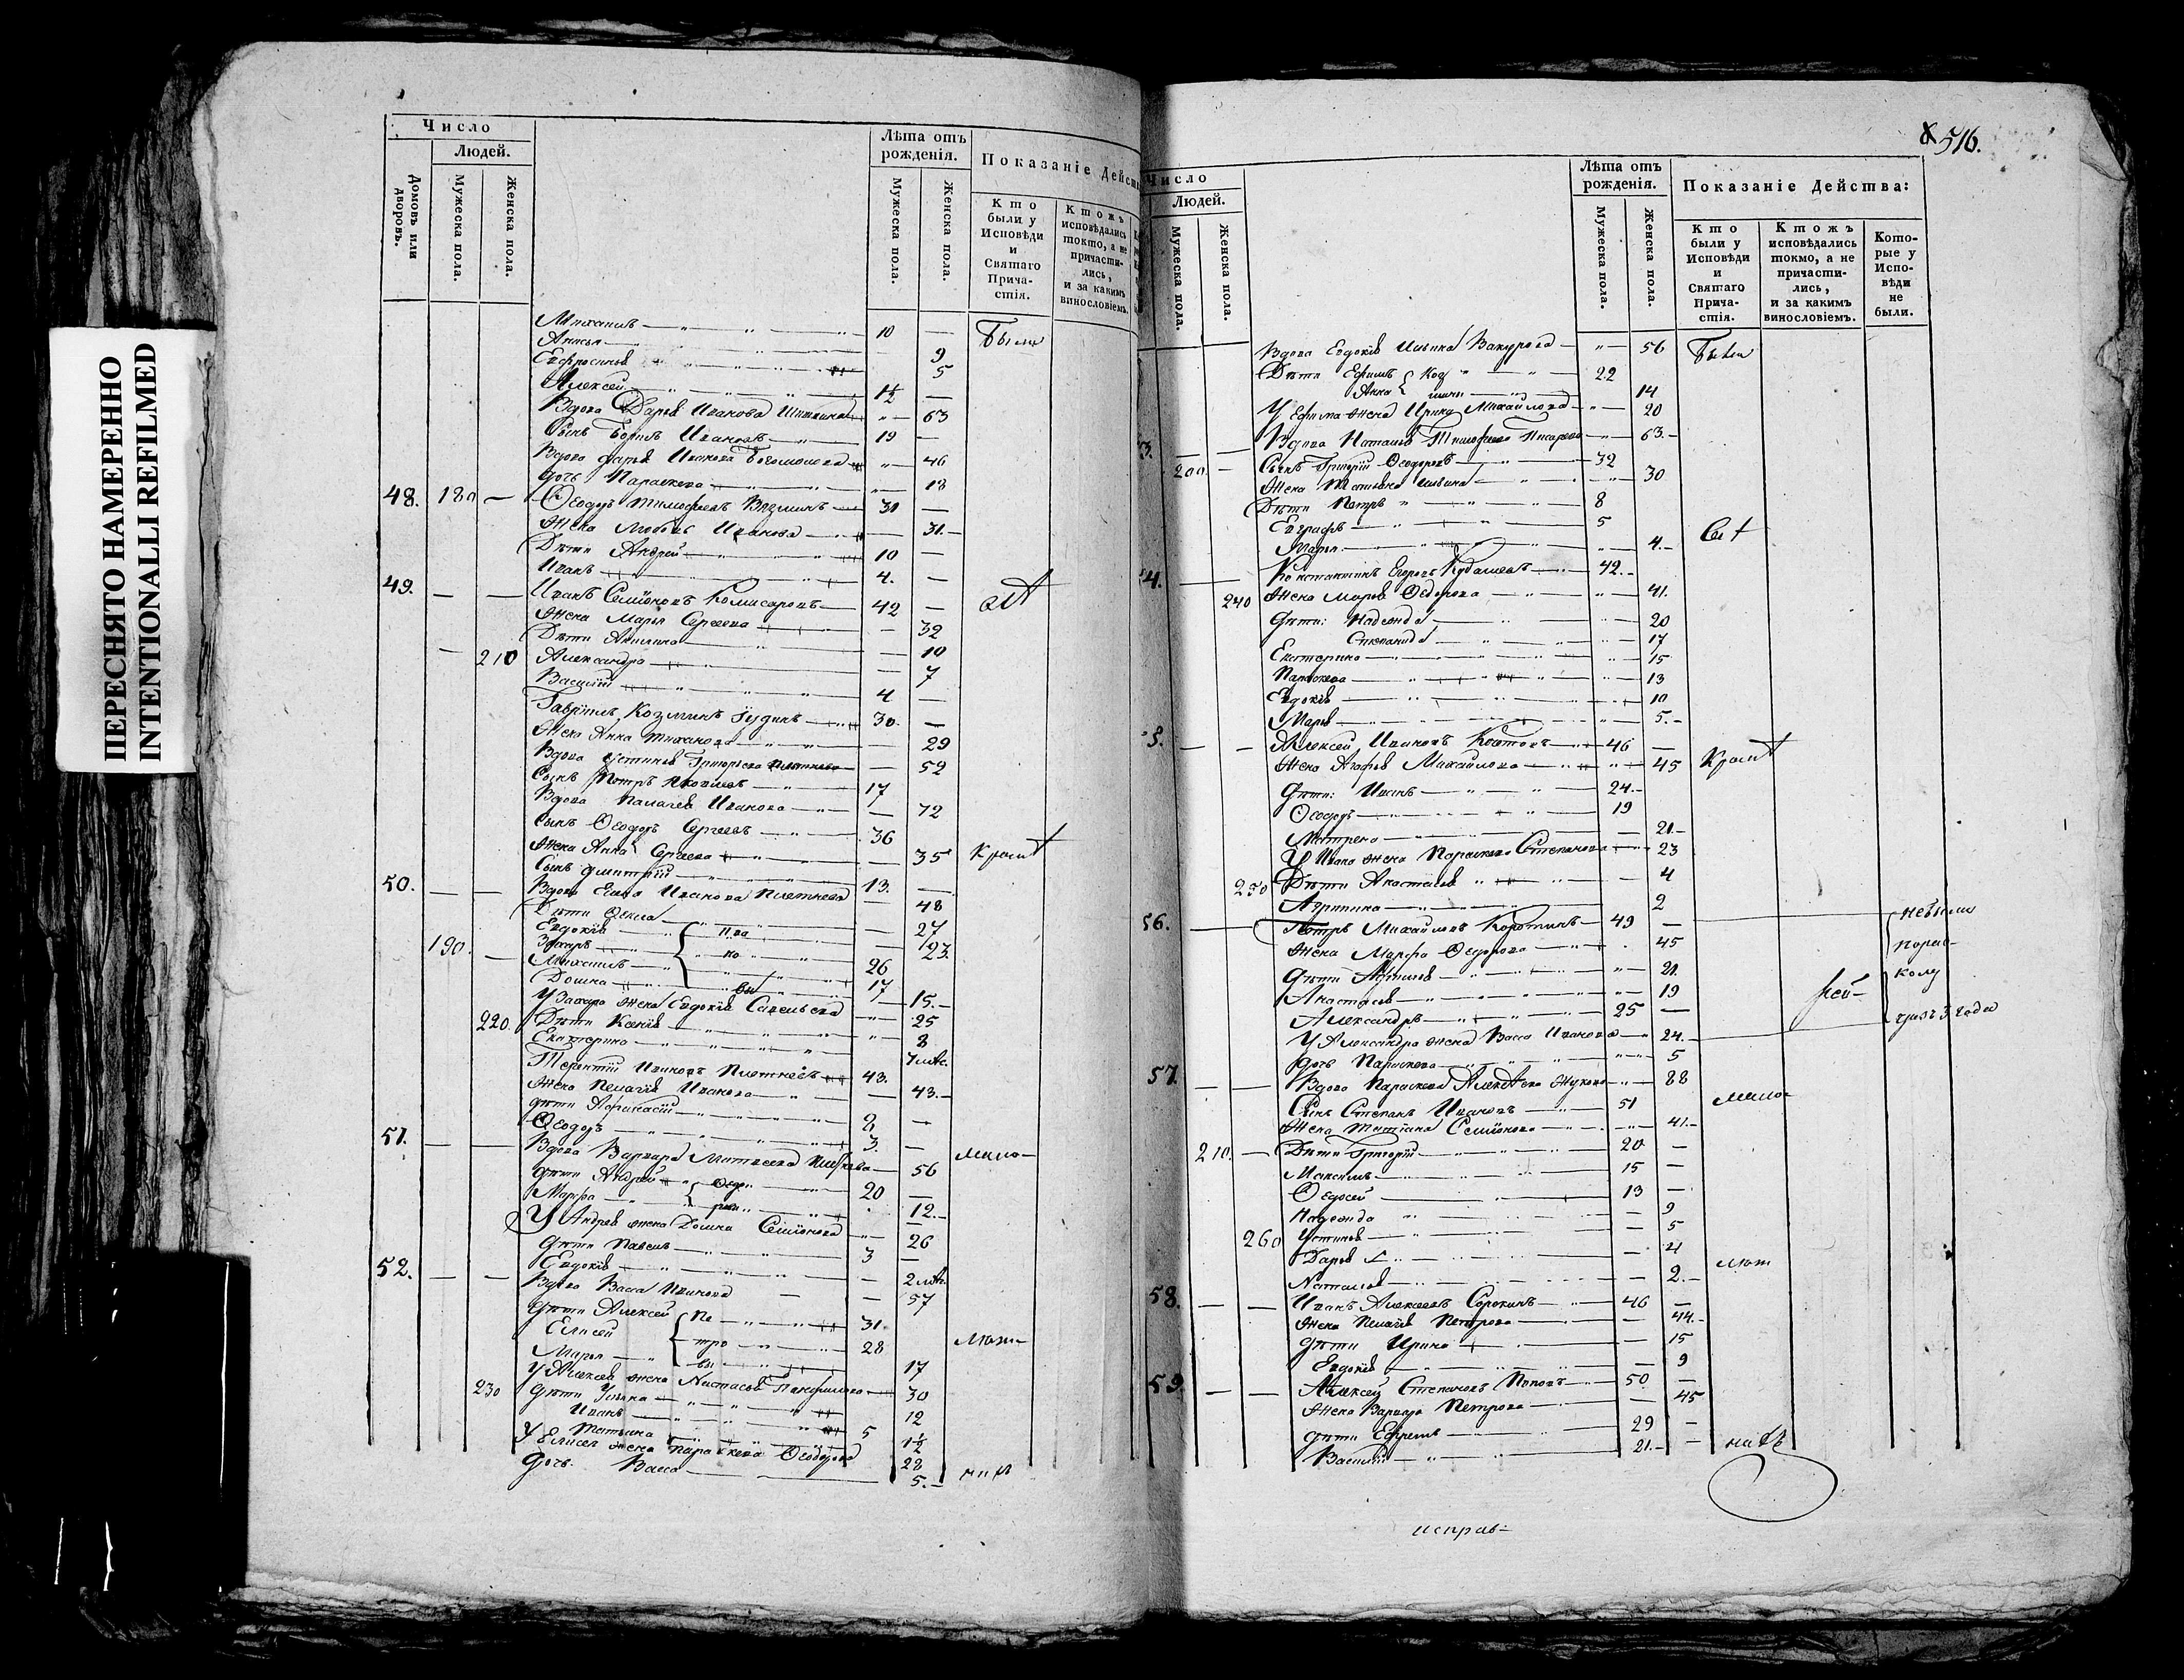 ПЕРЕСНЯТО НАМЕРЕННО
INTENTIONALLI REFILMED
Число
Людей.
Домовъ или дворовъ.
Мужеска пола.
Женска пола.
Лѣта отъ рожденія.
Мужеска пола.
Женска пола.
Показаніе Дейст
Кто были у Исповѣди и Святаго Прича-стія.
Ктожъ исповѣдались токмо, а не причасти-лись, и за какимъ винословіемъ.
Михаилъ 10 Были
Анисья 9
Евфросинья 5
Алексей 1½
Вдова Дарья Иванова 63
Сынъ Борисъ Ивановъ 19
Вдова Дарья Иванова Богомолова 46
Дочь Параскева 18
48. 180 Ѳеодоръ Тимофеевъ Вязминъ 31
Жена Любовь Иванова 31
Дѣти Андрей 10
Иванъ 4.
49. Иванъ Семіоновъ Комисаровъ 42
Жена Марья Сергеева 32
Дѣти Акилина 10
210 Александра 7
Василій 4
Гаврiилъ Козминъ Іудинъ 30.
Жена Анна Тиханова 29
Вдова Устинья Григорьева Плетнева 52
Сынъ Петръ Яковлевъ 17
Вдова Палагея Иванова 72
Сынъ Ѳеодоръ Сергеевъ 36
Жена Анна Сергеева 35
Сынъ Дмитрій 13.
50. Вдова Елена Иванова Плетнева 48
Дѣти Ѳекла 27
Евдокія Ива 23
190. Захаръ но 26
Михаилъ 17
Домна вы 15.
У Захара жена Евдокія Савельева 25
220. Дѣти Ксенія 8
Екатерина
Терентій Ивановъ Плетнёвъ 43.
Жена Пелагія Иванова 43.
Дѣти Афанасій 8
Ѳеодоръ 3.
51. Вдова Варвара Матвеева 56
Дѣти Андрей Ѳедо 20
Марфа ровы 12.
У Андрея жена Домна Семіонова 26
Дѣти Павелъ 3
Евдокія
52. Вдова Васса Иванова 57
Дѣти Алексей Пе 31.
Елисей тро 28
Марья вы 17
У Алексея жена Настасья Панфилова 30
230 Дѣти Ульяна 12
Иванъ 5
Татьяна 1½
У Елисея жена Параскева Ѳеодорова 28
Дочь Васса 5.
516.
Число
Людей.
Мужеска пола.
Женска пола.
Лѣта отъ рожденія.
Мужеска пола.
Женска пола.
Показаніе Действа:
Кто были у Исповѣди и Святаго Прича-стія.
Ктожъ исповѣдались токмо, а не причасти-лись, и за какимъ винословіемъ.
Кото-рые у Испо-вѣди не были.
Вдова Евдокія Ильина Вакурова 56 Были
Дѣти Ефимъ 22
Анна 14
У Ефима жена Ирина Михайлова 20
3. Вдова Наталья Тимофеева Писарева 63.
200 Сынъ Григорій Ѳеодоровъ 32
Жена Татьяна Ильина 30
Дѣти Петръ 8
Евграфъ 5
Марья 4.
4. Константинъ Егоровъ Кудашевъ 42.
240 Жена Марья Ѳедорова 41.
Дѣти: Надежда 20
Степанида 17
Екатерина 15
Параскева 13
Евдокія 10
Марья 5.
Алексей Ивановъ 46
Жена Агафья Михайлова 45
Дѣти: Иванъ 24.
Ѳеодоръ 19
Матрена 21.
У Ивана жена Параскева Степанова 23
250 Дѣти Анастасія 4
Агрипина 2
56. Петръ Михайловъ Коротинъ 49 не были
Жена Марфа Ѳедорова 45 по рас-
Дѣти Афимья 21. колу
Анастасія 19
Александръ 25 чрезъ 3 года
У Александра жена Васса Иванова 24.
Дочь Параскева 5
57. Вдова Параскева Алексеева Жукова 88
Сынъ Степанъ Ивановъ 51
Жена Татіана Семіонова 41.
210. Дѣти Григорій 20
Максимъ 15
Ѳедосей 13
Надежда 9
260 Устинья 5
Дарья 4
Наталья 2.
58. Иванъ Алексеевъ Сорокинъ 46
Жена Пелагія Петрова 44.
Дѣти Ирина 15
Евдокія 9
59. Алексей Степановъ Поповъ 50
Жена Варвара Петрова 45
Дѣти Ефремъ 29
Василій 21.
исправ-